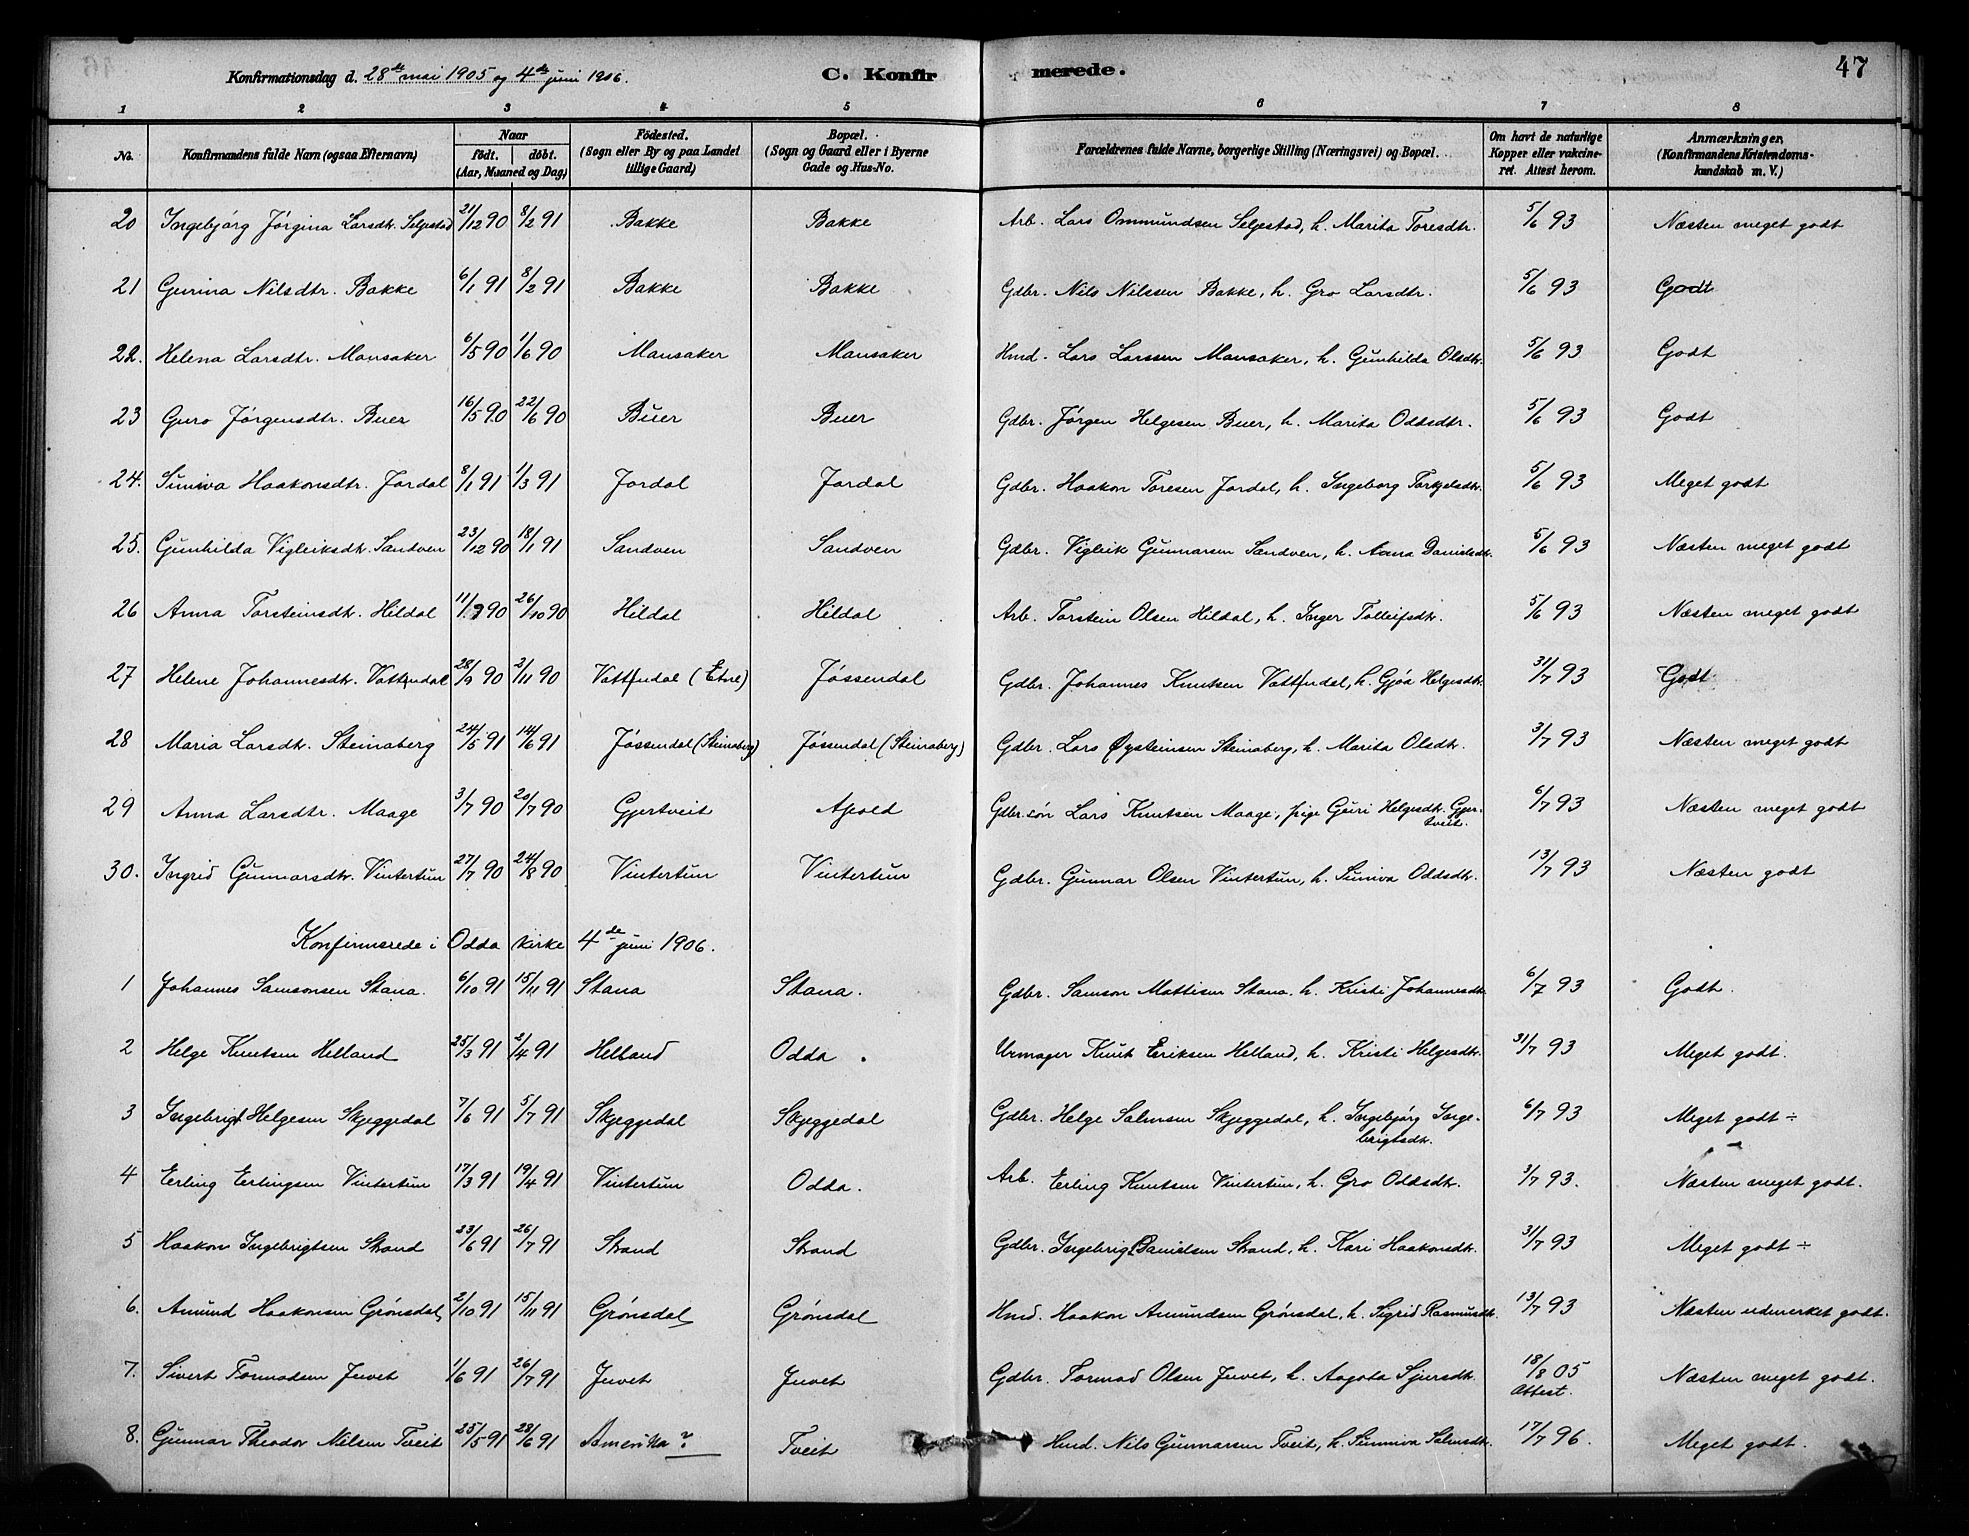 47
Konfirmationsdag d. 28de mai 1905 og 4de juni 1906.
C. Konfirmerede.
1 2 3 4 5 6 7 8
No. | Konfirmandens fulde Navn (ogsaa Efternavn) | Naar födt. | döbt. (Aar, Maaned og Dag) | Födested. (Sogn eller By og paa Landet tillige Gaard) | Bopæl. (Sogn og Gaard eller i Byerne Gade og Hus-No. | Forældrenes fulde Navne, borgerlige Stilling (Næringsvei) og Bopæl. | Om havt de naturlige Kopper eller vakcineret. Attest herom. | Anmærkninger, (Konfirmandens Kristendomskundskab m. V.)
20 Ingebjórg Jórgina Larsdtr. Seljestad 21/12 90 8/2 91 Bakke Bakke Arb. Lars Ommundsen Seljestad, h. Marita Toresdtr. 5/6 93 Næsten meget godt
21 Gurina Nilsdtr. Bakke 6/1 91 8/2 91 Bakke Bakke Gdbr. Nils Nilssen Bakke, h. Gro Larsdtr. 5/6 93 Godt
22. Helena Larsdtr. Mansaker 6/5 90 1/6 90 Mansaker Mansaker Hmd. Lars Larssen Mansaker, h. Gunhilda Olsdtr. 5/6 93 Godt
23 Guro Jørgensdtr. Buer 16/5 90 22/6 90 Buer Buer Gdbr. Jørgen Helgesen Buer, h. Marita Oddsdtr. 5/6 93 Godt
24. Suniva Haakonsdtr. Jordal 8/1 91 1/3 91 Jordal Jordal Gdbr. Haakon Toresen Jordal, h. Ingeborg Torkjelsdtr. 5/6 93 Meget godt
25. Gunhilda Vigleiksdtr. Sandven 23/12 90 18/1 91 Sandven Sandven Gdbr. Vigleik Gunnarsen Sandven, h. Anna Danielsdtr. 5/6 93 Næsten meget godt
26 Anna Torsteinsdtr. Hildal 11/9 90 26/10 90 Hildal Hildal Arb. Torstein Olsen Hildal, h. Inger Tolleifsdtr. 5/6 93 Næsten meget godt
27 Helene Johannesdtr. Vattndal 28/9 90 2/11 90 Vattndal (Etne) Jøssendal Gdbr. Johannes Knutsen Vattndal, h. Gjøa Helgesdtr. 31/7 93 Godt
28 Maria Larsdtr. Steinaberg 24/5 91 14/6 91 Jøssendal (Steinaberg) Jøssendal (Steinaberg) Gdbr. Lars Øysteinsen Steinaberg, h. Marita Olsdtr. 3/7 93 Næsten meget godt
29 Anna Larsdtr. Maage 3/7 90 20/7 90 Gjertveit Apold Gdbr. són Lars Knutsen Maage, pige Guri Helgesdtr. Gjer-
tveit. 6/7 93 Næsten meget godt
30. Ingrid Gunnarsdtr. Vintertun 27/7 90 24/8 90 Vintertun Vintertun Gdbr. Gunnar Olsen Vintertun, h. Suniva Oddsdtr. 13/7 93 Næsten godt
Konfirmerede i Odda kirke 4de juni 1906.
1 Johannes Samsonsen Stana. 6/10 91 15/11 91 Stana Stana. Gdbr. Samson Mattisen Stana, h. Kristi Johannesdtr. 6/7 93 Godt.
2 Helge Knutsen Helland 25/3 91 2/4 91 Helland Odda. Urmager Knut Eriksen Helland, h. Kristi Helgesdtr. 31/7 93 Meget godt.
3 Ingebrigt Helgesen Skjeggedal 7/6 91 5/7 91 Skjeggedal Skjeggedal Gdbr. Helge Salmsen Skjeggedal, h. Ingebjórg Inge-
brigtsdtr. 6/7 93 Meget godt ÷
4 Erling Erlingsen Vintertun 17/3 91 19/4 91 Vintertun Odda. Arb. Erling Knutsen Vintertun, h. Gro Oddsdtr. 3/7 93. Næsten meget godt.
5 Haakon Ingebrigtsen Strand 23/6 91 26/7 91 Strand Strand Gdbr. Ingebrigt Danielsen Strand, h. Kari Haakonsdtr. 31/7 93 Meget godt ÷
6. Amund Haakonsen Grónsdal 2/10 91 15/11 91 Grónsdal Grónsdal Hmd. Haakon Amundsen Grónsdal, h. Sigrid Rasmusdtr. 13/7 93 Næsten udmerket godt.
7. Sivert Tormodsen Juvet 1/6 91 26/7 91 Juvet Juvet Gdbr. Tormod Olsen Juvet, h. Aagota Sjursdtr. 18/8 05 Attest. Næsten meget godt.
8. Gunnar Theodor Nilsen Tveit 25/5 91 28/6 91 Amerika? Tveit Hmd. Nils Gunnarsen Tveit, h. Sunniva Salmsdtr. 17/7 96. Meget godt.